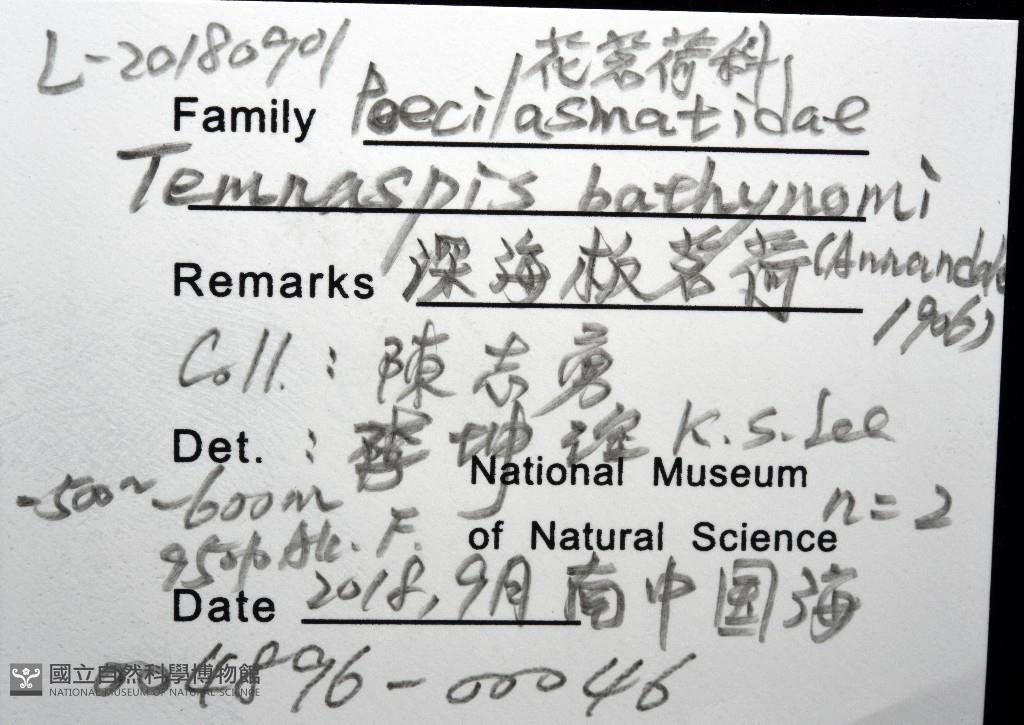 L-20180901
花茗荷科
Family Poecilasmatidae
Temnaspis bathynomi
Remarks 深海板茗荷 (Annandale
1906)
Coll. : 陳志勇
Det. : 李坤瑄 K. S. Lee
National Museum
-500~-600m n=2
of Natural Science
95% Alc. F.
Date 2018, 9月 南中国海
004896-00046
國立自然科學博物館
NATIONAL MUSEUM OF NATURAL SCIENCE